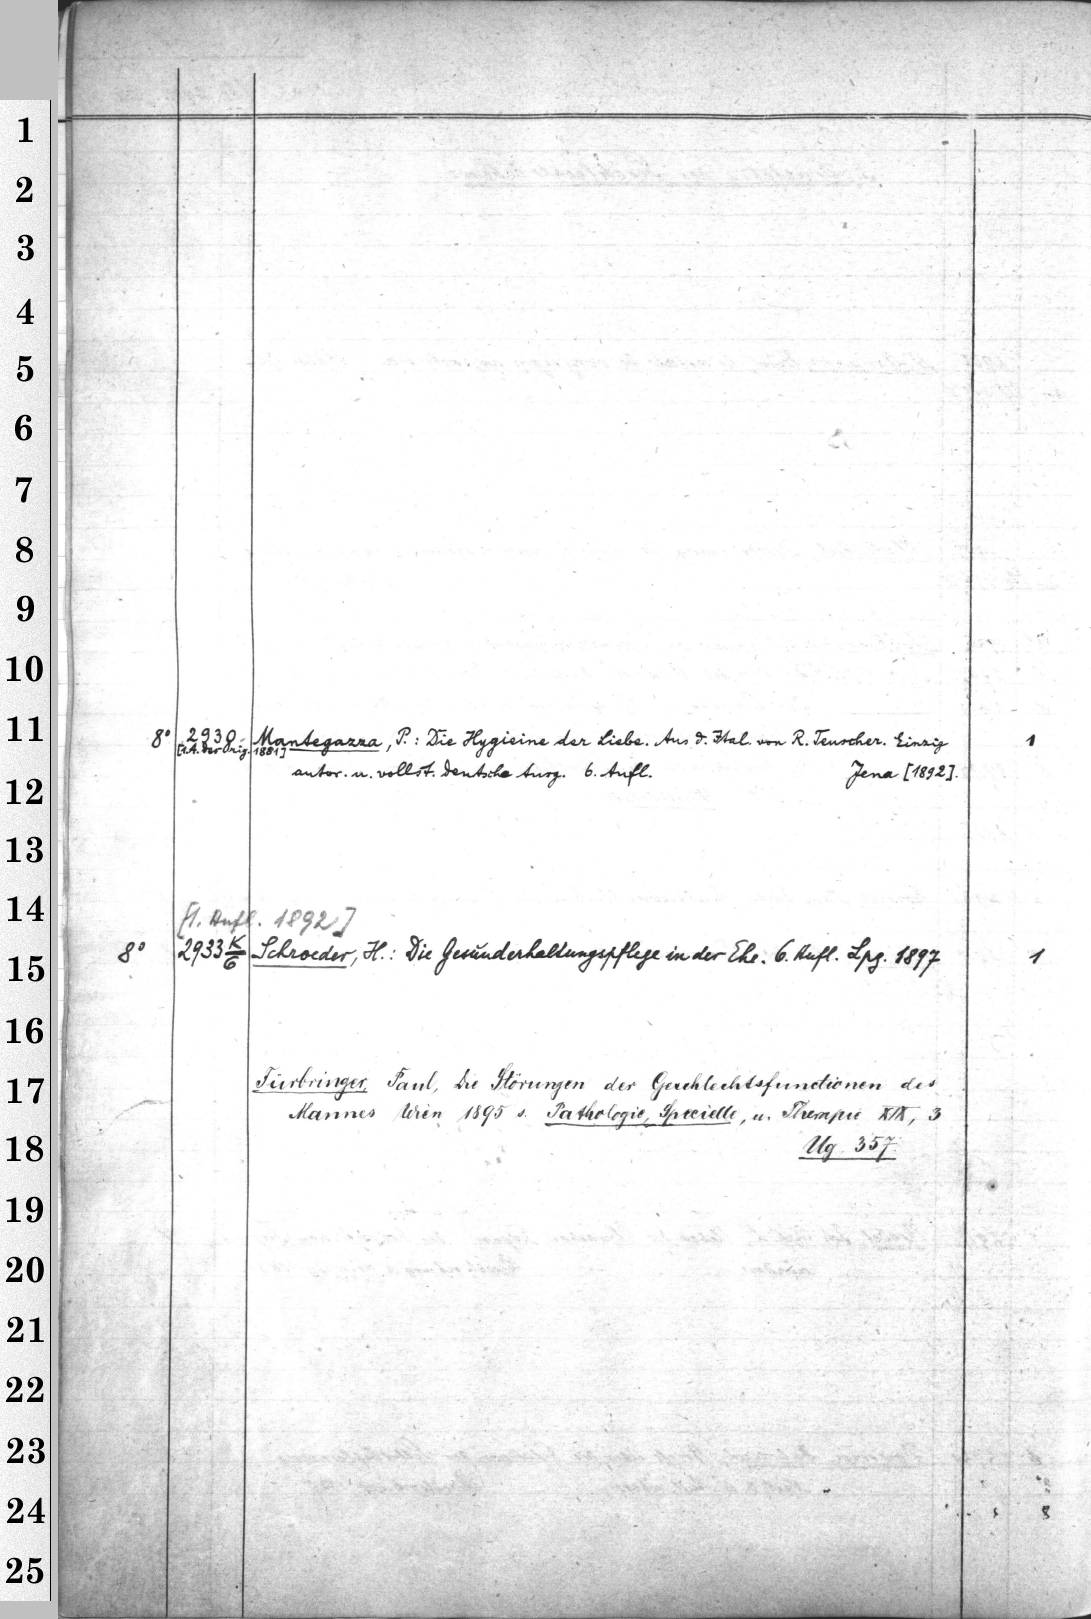 1
2
3
4
5
6
7
8
9
10
11
12
13
14
15
16
17
18
19
20
21
22
23
24
25
8° 2930. Mantegazza, P.: Die Hygieine der Liebe. Aus d. Ital. von R. Teuscher. Einzig 1
[1.A. der Orig. 1881]
autor. u. vollst. deutsche Ausg. 6. Aufl. Jena [1892].
[1. Aufl. 1892]
8° 2933 K/6 Schroeder, H.: Die Gesunderhaltungspflege in der Ehe. 6. Aufl. Lpg. 1897 1
Fürbringer, Paul, Die Störungen der Geschlechtsfunctionen des
Mannes Wien 1895 s. Pathologie, Specielle, u. Therapie XIX, 3
Ug. 357
8